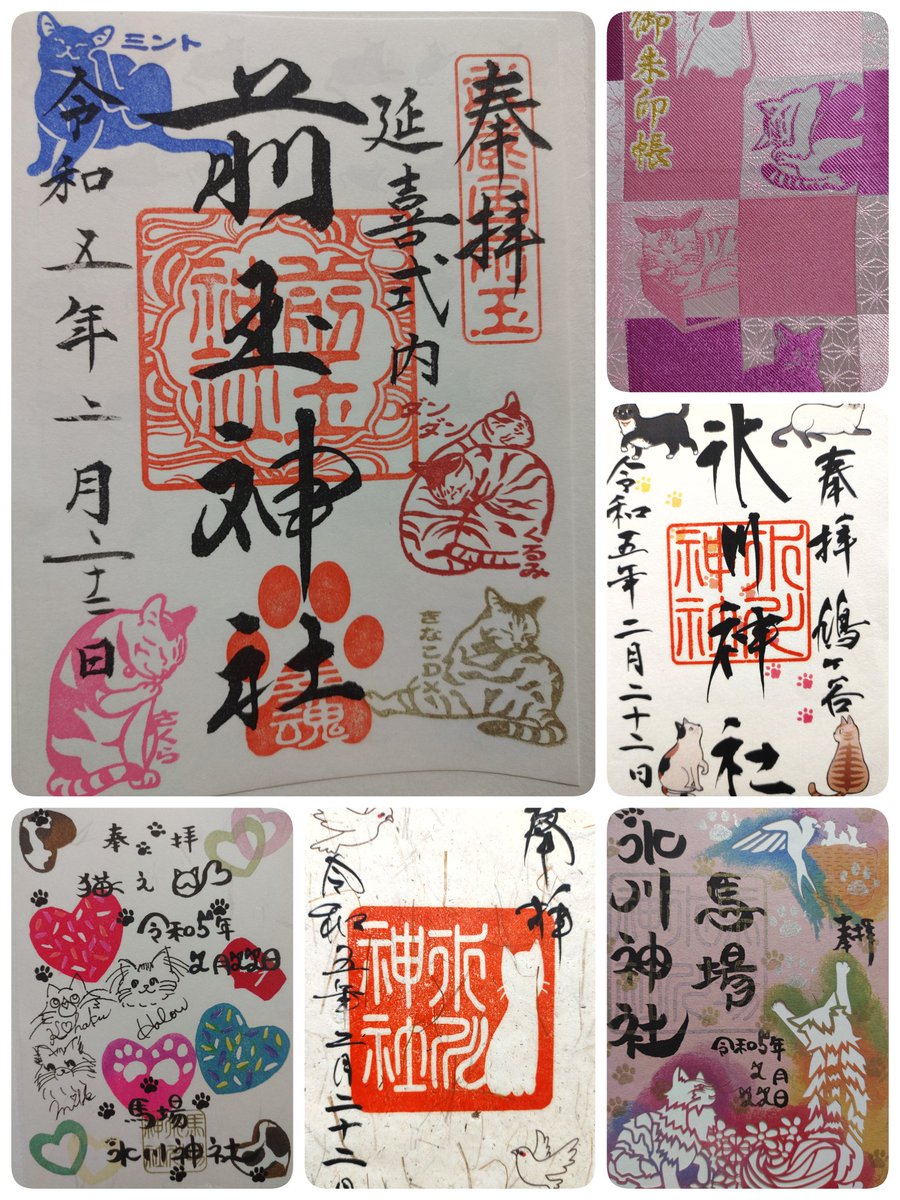 奉拝
延喜式内
前玉神社
前玉神社
令和五年二月二十二日
ミント
ダンダン
くるみ
きなこDX
さくら
魂
御朱印帳
奉拝 鳩ヶ谷
氷川神社
氷川神社
令和五年二月二十二日
奉拝
令和5年
2月22日
Kohaku
milk
馬場
氷川神社
奉拝
氷川神社
令和五年二月二十二日
馬場
氷川神社
奉拝
令和5年
2月
22日